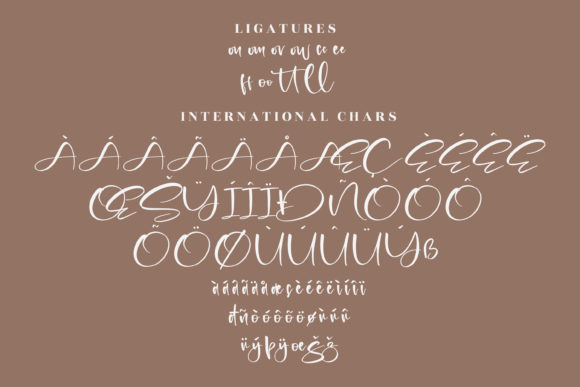 LIGATURES
on om ov ow cc ee
ff oo tt ll
INTERNATIONAL CHARS
À Á Â Ã Ä Å Æ Ç È É Ê Ë
Œ Š Ÿ Í Î Ï Đ Ñ Ò Ó Ô
Õ Ö Ø Ù Ú Û Ü Ý ß
à á â ã ä å æ ç è é ê ë ì í î ï
đ ñ ò ó ô õ ö ø ù ú û
ü ý þ ÿ œ Š ž